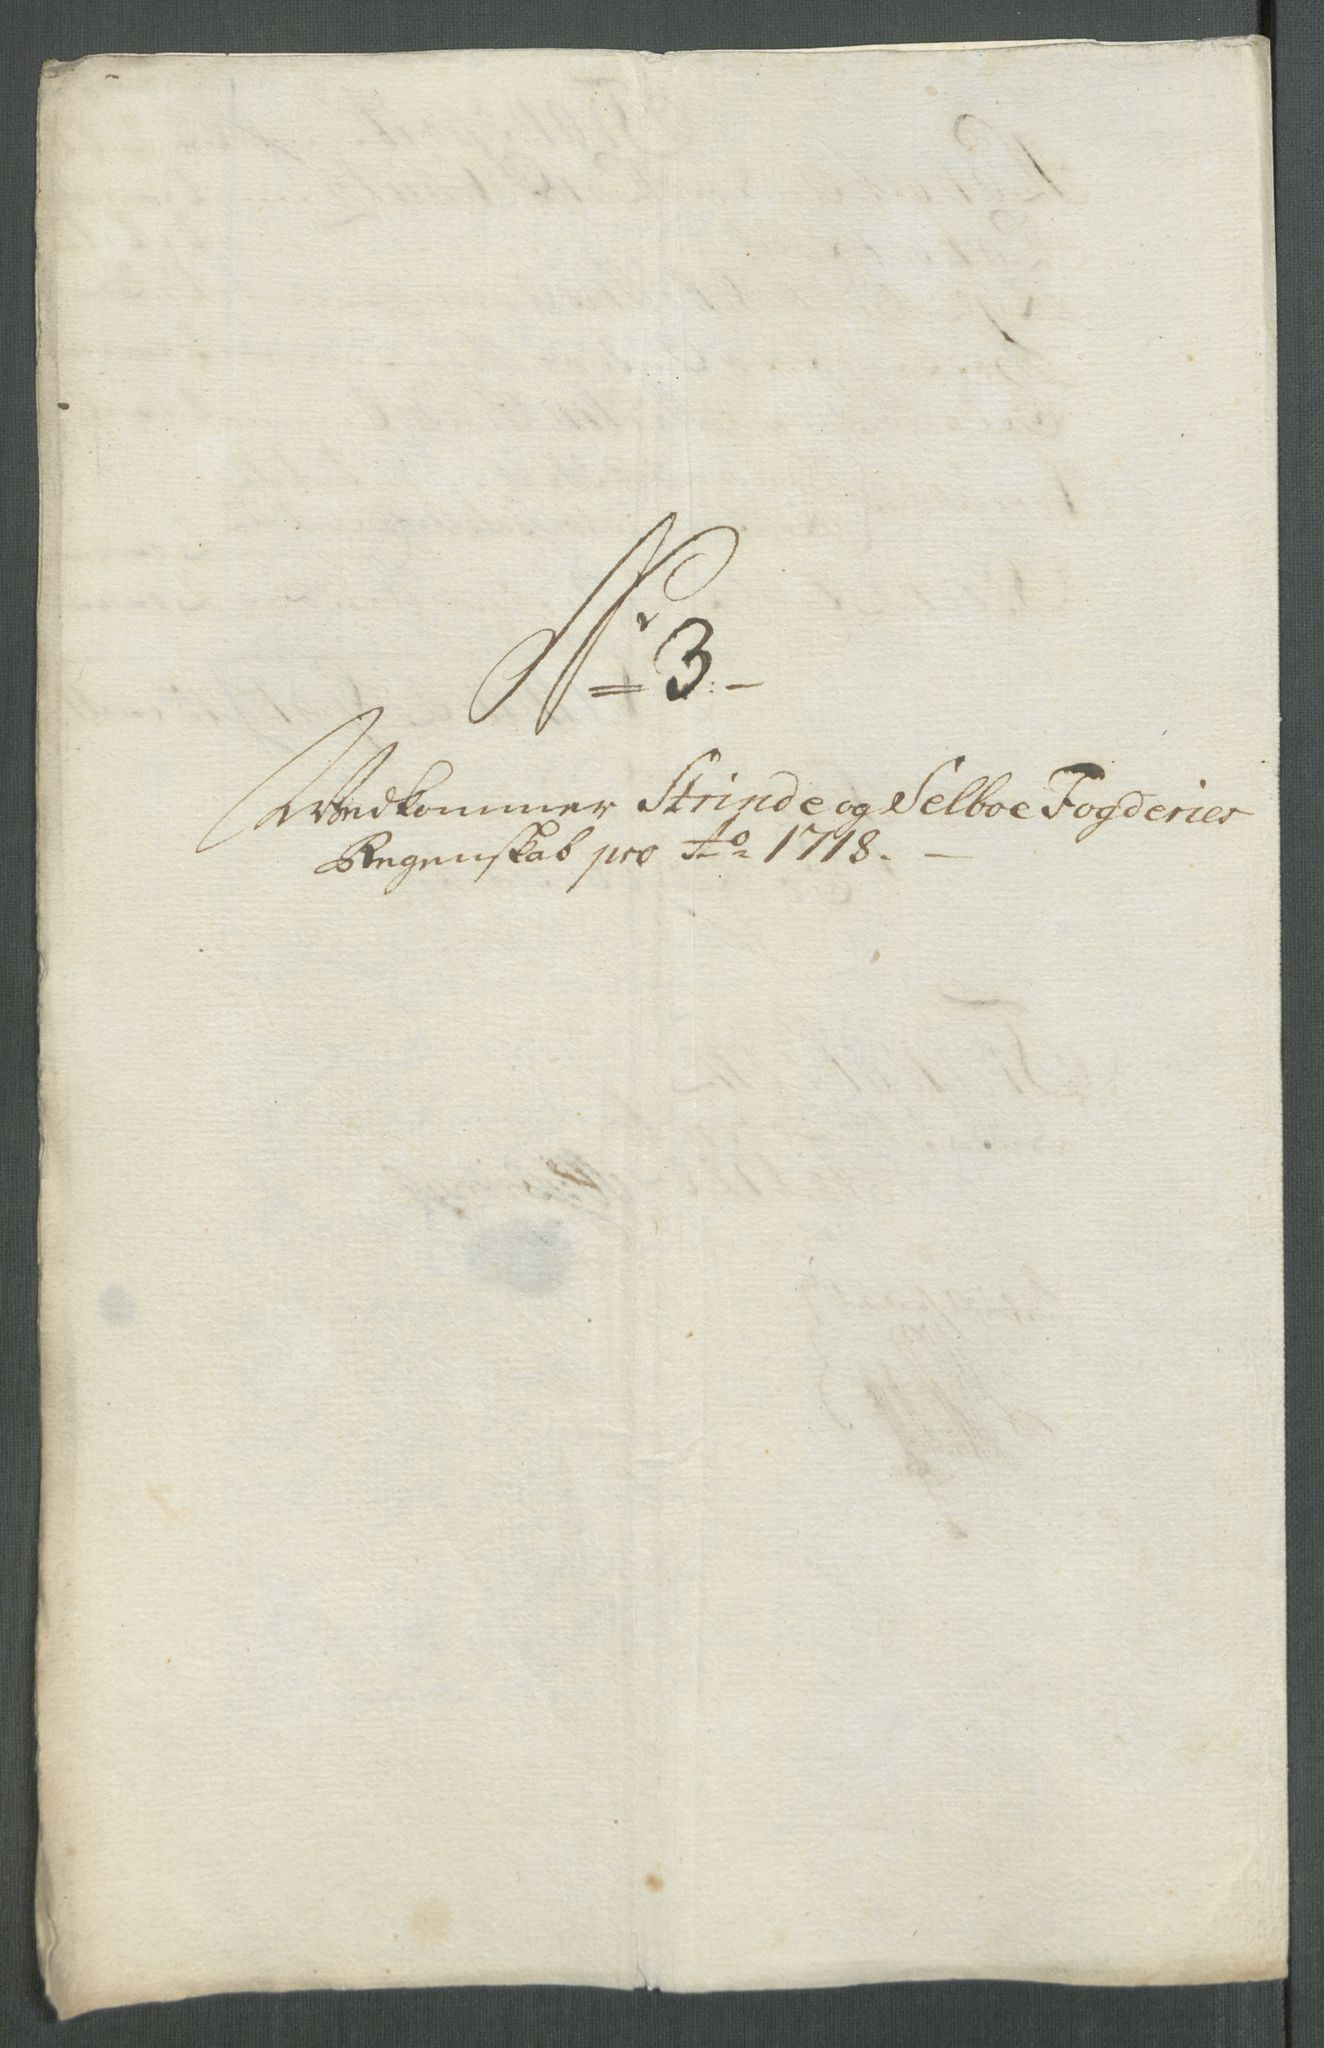 Nr 3.
Vedkommer Strinde og Selboe Fogderier
Regenskab pro Ao 1718.